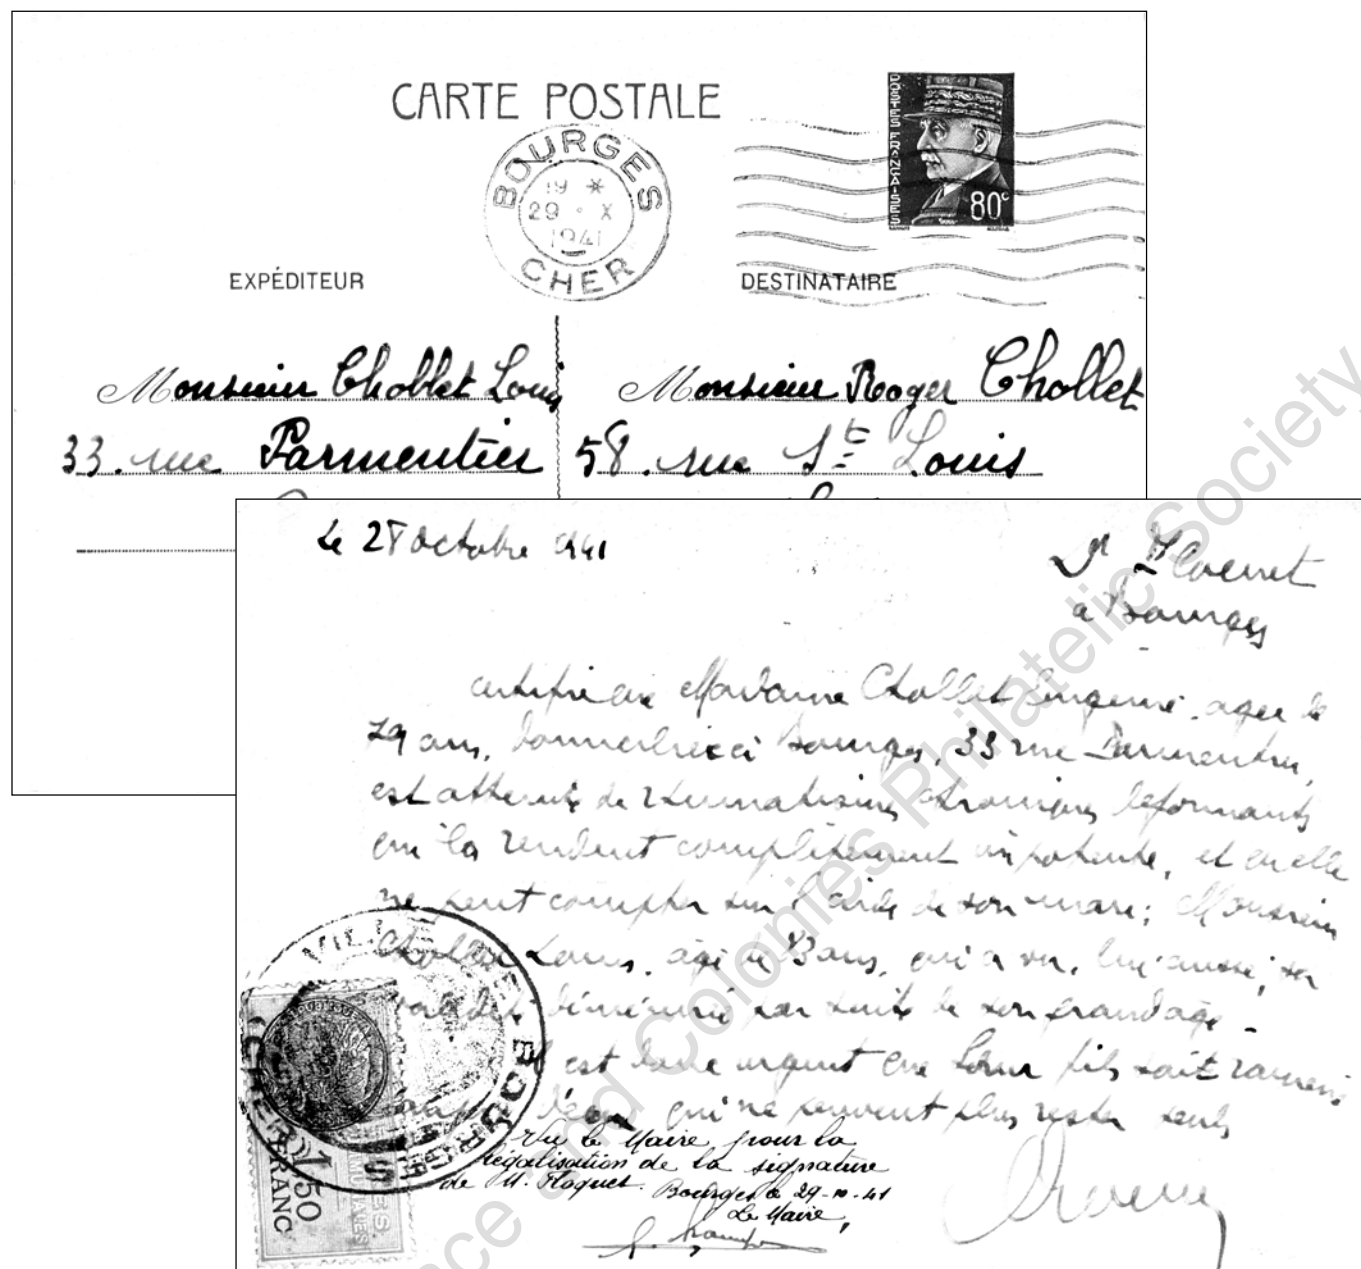 CARTE POSTALE
POSTES FRANÇAISES
80c
BOURGES
19 *
29 · X
1941
CHER
EXPÉDITEUR
DESTINATAIRE
Monsieur Chollet Louis
33. rue Parmentier
Monsieur Roger Chollet
58. rue St Louis
Le 28 octobre 1941
Dr
a Bourges
certifie que Madame Chollet Eugenie, agée de
79 ans, domiciliée à Bourges, 33 rue Parmentier,
est atteinte de rhumatismes chroniques déformants
qui la rendent complètement impotente, et qu'elle
ne peut compter sur l'aide de son mari; Monsieur
Chollet Louis, âgé de 83 ans, qui a vu, lui aussi, sa
diminuée par suite de son grand âge -
est donc urgent que leur fils soit ramené
qui ne peuvent plus rester seuls
Vu le Maire, pour la
légalisation de la signature
de M. Floquet. Bourges le 29-10-41
Le Maire,
VILLE DE BOURGES
(CHER)
1,50
FRANC
France and Colonies Philatelic Society